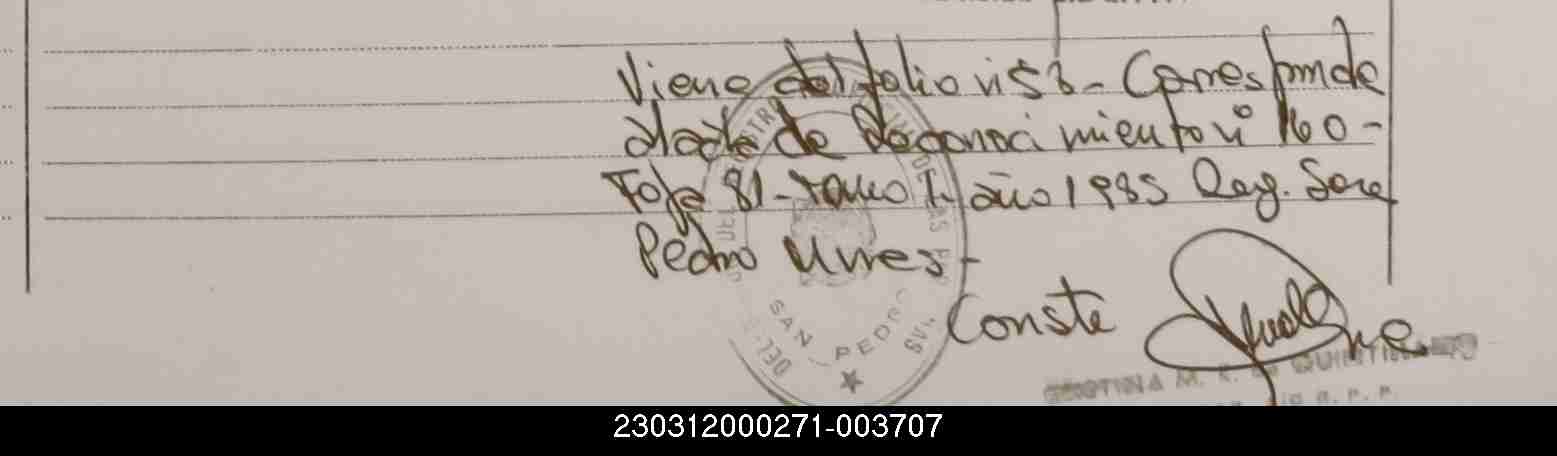 Viene del folio nº 53 - Corresponde
al acta de Reconocimiento nº 160 -
Foja 81 - Tomo I - año 1985 Reg. Sore
Pedro Urres -
Conste
SAN PEDRO
DEL
230312000271-003707